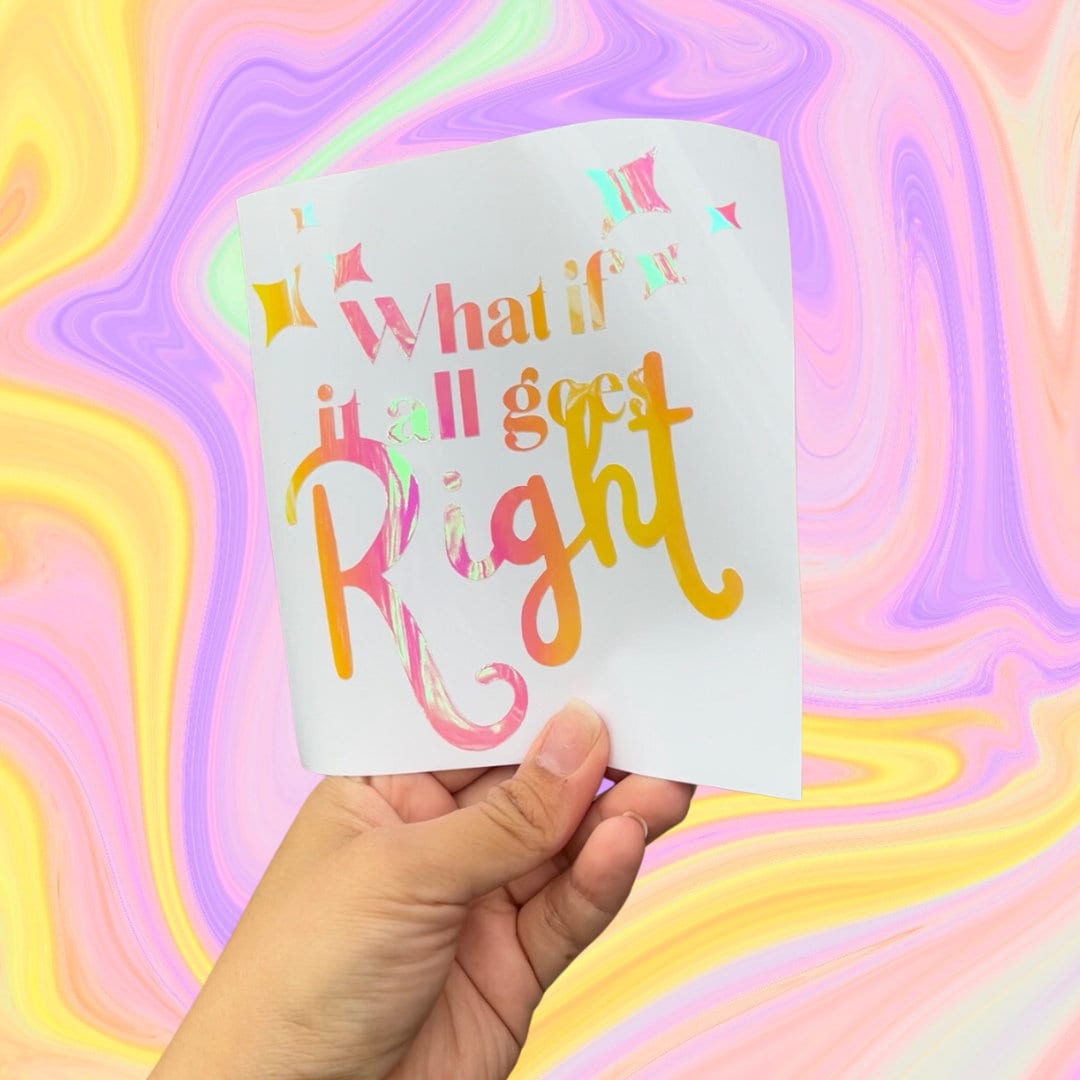 What if
it all goes
Right